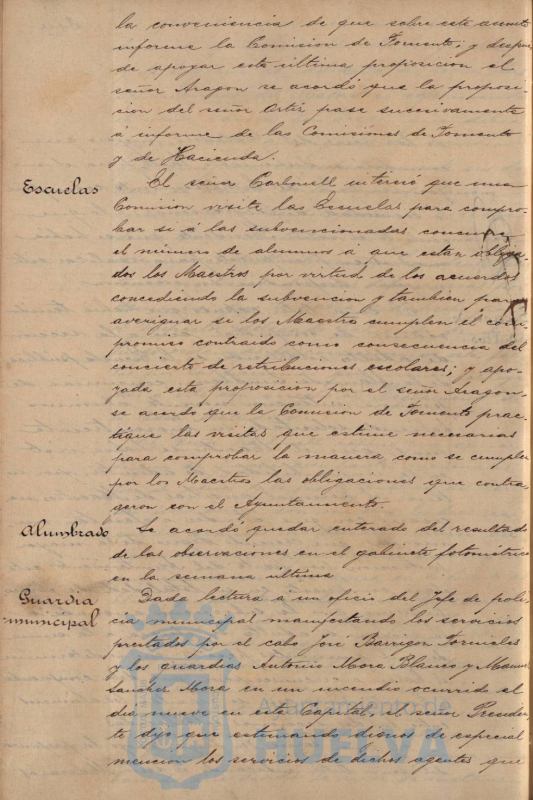 la conveniencia de que sobre este asunto
informe la Comision de Fomento; y despues
de apoyar esta última proposicion el
señor Aragon se acordó que la proposi-
cion del señor Ortiz pase sucesivamente
á informe de las Comisiones de Fomento
y de Hacienda.
Escuelas
El señor Carbonell interesó que una
Comision visite las Escuelas para compro-
bar si á las subvencionadas concurre
el número de alumnos á que estan obliga-
dos los Maestros por virtud de los acuerdos
concediendo la subvencion y tambien para
averiguar si los Maestros cumplen el com-
promiso contraido como consecuencia del
concierto de retribuciones escolares; y apo-
yada esta proposicion por el señor Aragon,
se acordó que la Comision de Fomento prac-
tique las visitas que estime necesarias
para comprobar la manera como se cumplen
por los Maestros las obligaciones que contra-
geron con el Ayuntamiento.
Alumbrado
Se acordó quedar enterado del resultado
de las observaciones en el gabinete fotométrico
en la semana última
Guardia
municipal
Dada lectura á un oficio del Jefe de poli-
cía municipal manifestando los servicios
prestados por el cabo José Barrigon Forniels
y los guardias Antonio Mora Blanco y Manuel
Sanchez Mora en un incendio ocurrido el
dia nueve en esta Capital, el señor Presiden-
te dijo que estimando dignos de especial
mencion los servicios de dichos agentes que
Ayuntamiento de
HUELVA